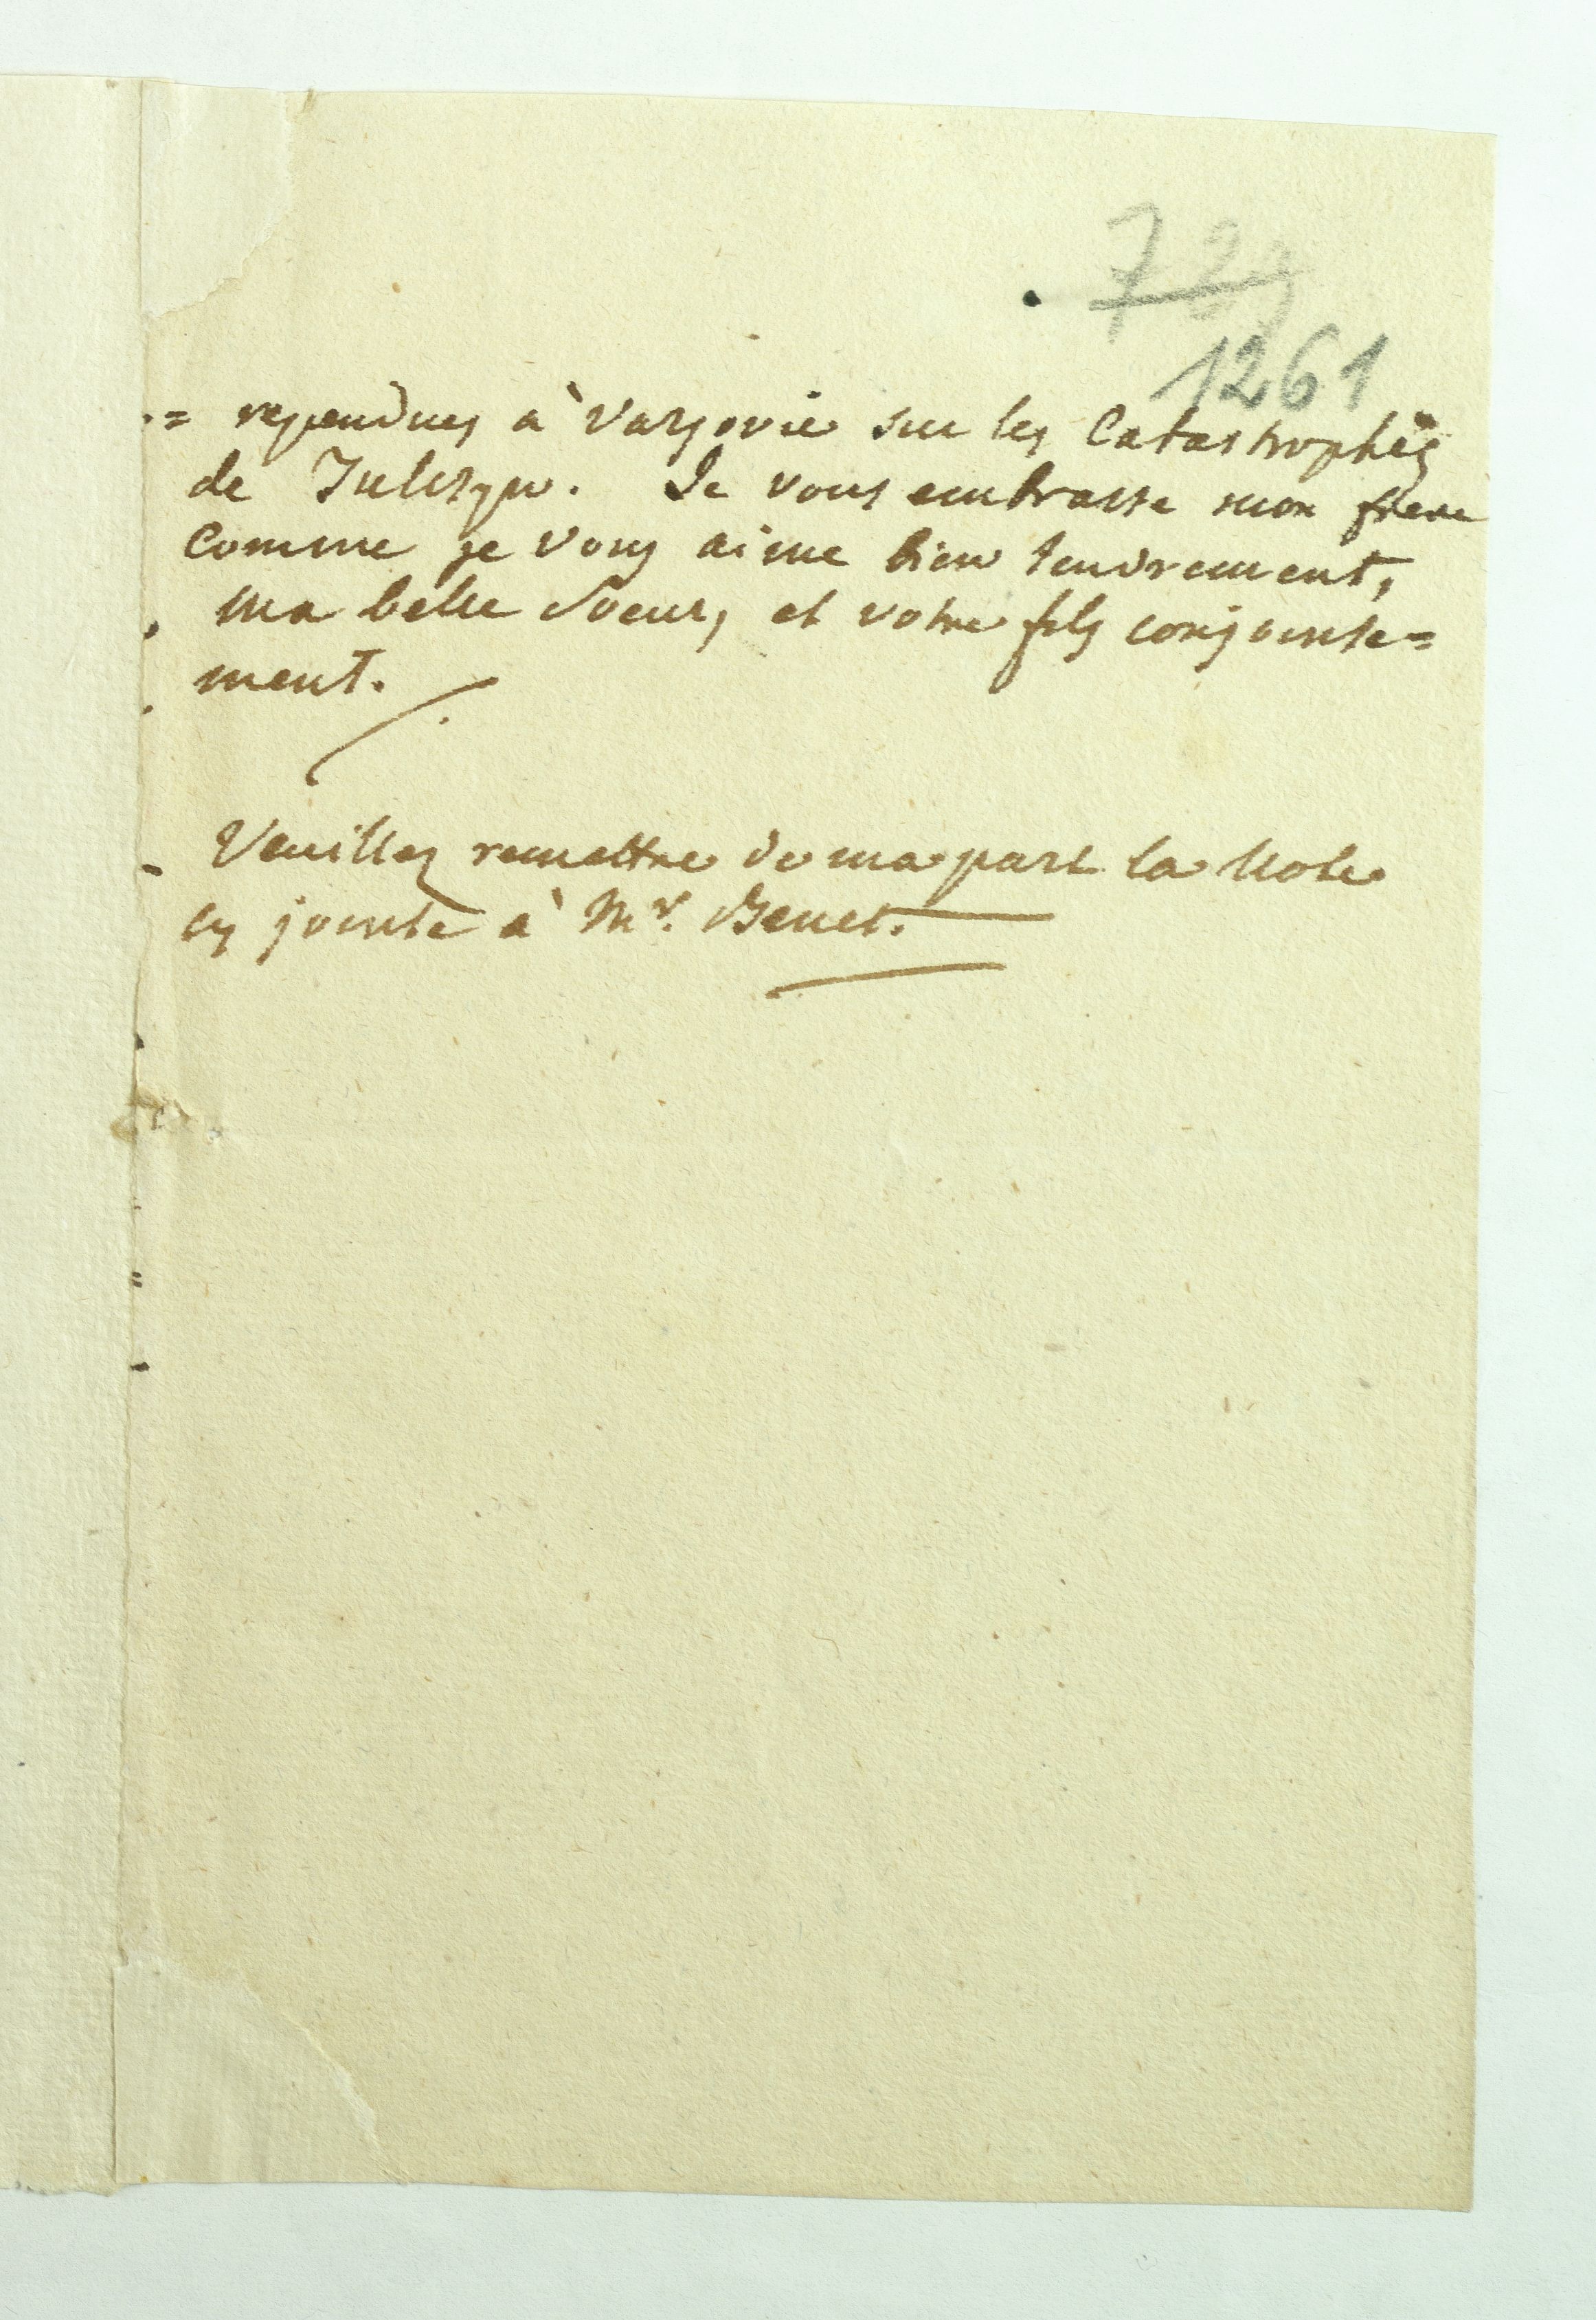 729
1261
= rependues à Varsovie sur les Catastrophes
de Tulczyn. Je vous embrasse mon frere
comme je vous aime bien tendrement,
ma belle Soeur, et votre fils conjointe=
ment.
Veuillez remettre de ma part la Note
cy jointe à Mr. Benet.